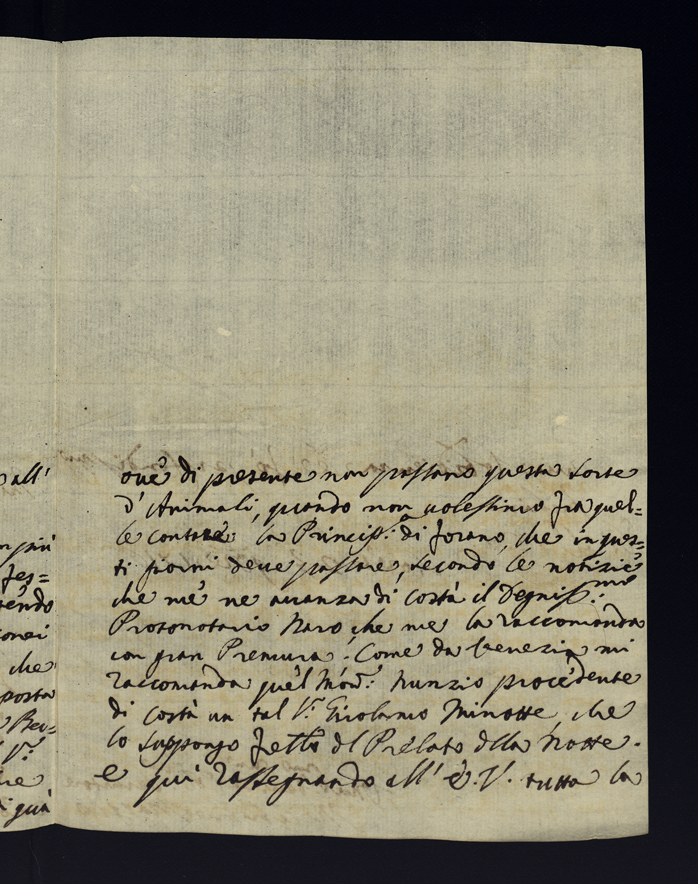 all'
più
che
posta
di quà
ove di presente non passano questa sorte
d'Animali, quando non volessimo fra quel=
le contare la Princip.ª di forano, che in ques=
ti giorni deve passare, secondo le notizie
che me ne avanza di costà il Degniss.mo
Protonotario Naro che me la raccomanda
con gran Premura. Come da Venezia mi
raccomanda quel Mon.r Nunzio procedente
di costà un tal S.r Girolamo Minotte, che
lo suppongo fratello del Prelato della Notte.
e quì rassegnando all' E. V. tutta la